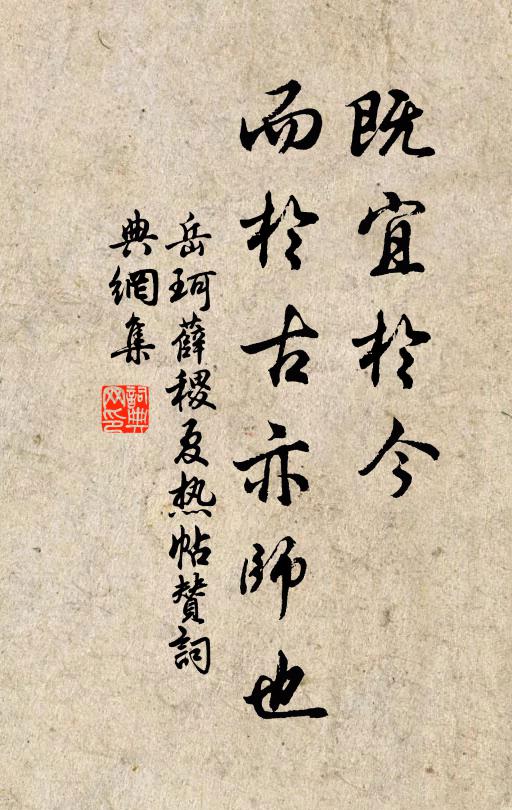 既宜於今
而於古亦師也
岳珂薛稷夏热帖赞詞
典網集
詞典网印